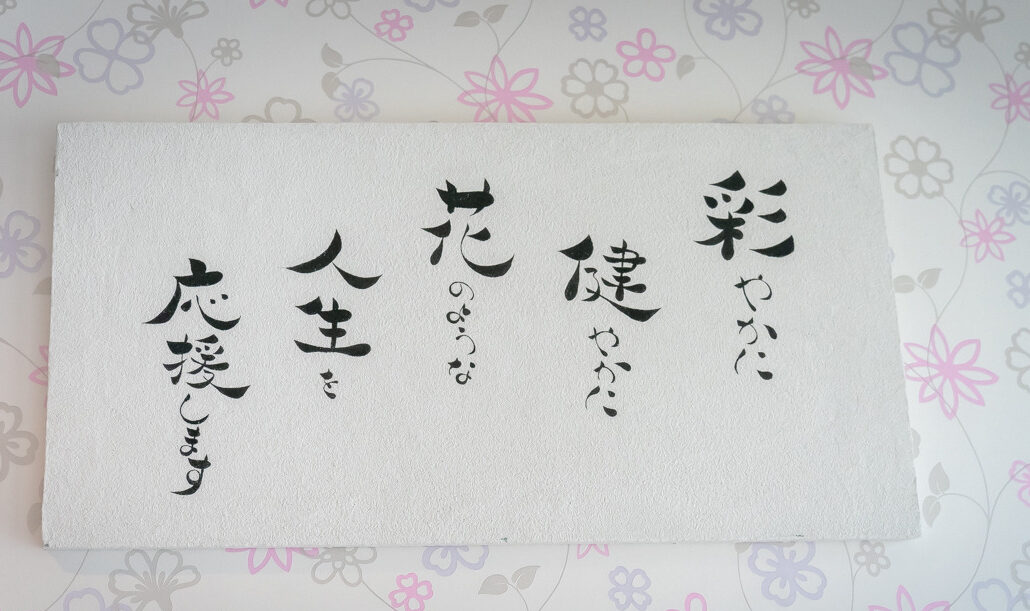 彩やかに
健やかに
花のような
人生を
応援します